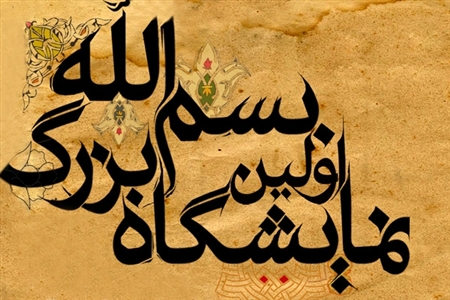 اولین
نمایشگاه
بزرگ
بسم الله